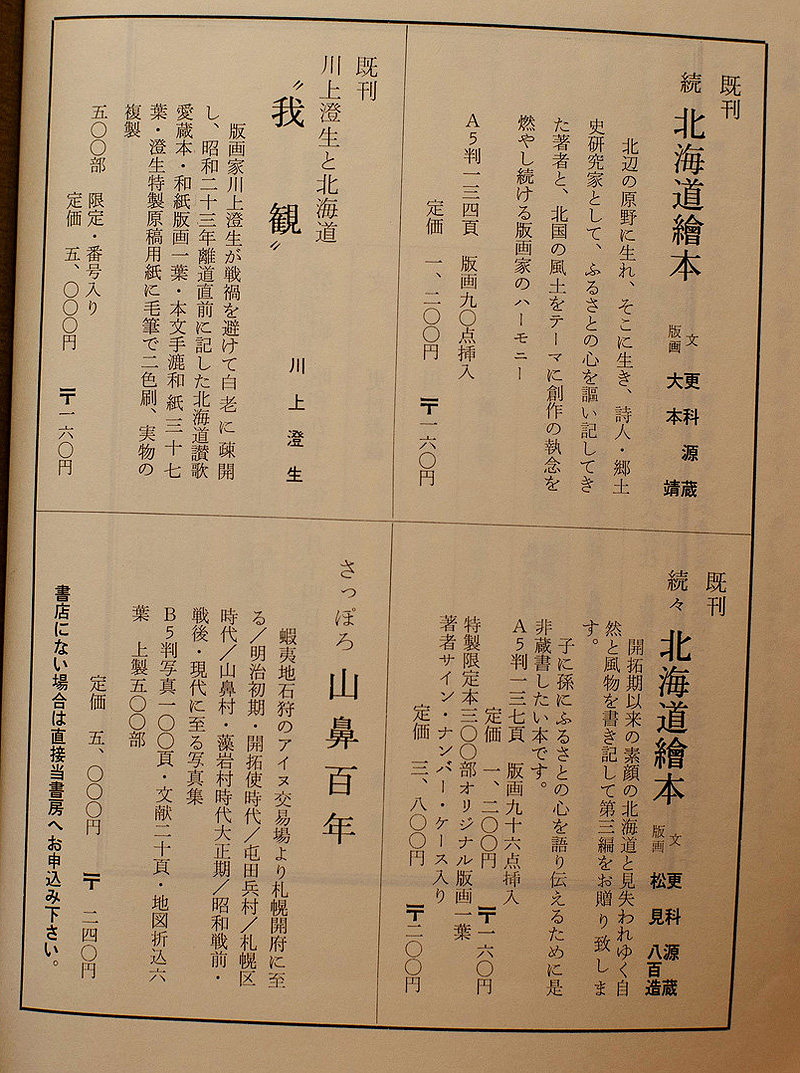 既刊
続 北海道繪本
文 更科源蔵
版画 大本靖
北辺の原野に生れ、そこに生き、詩人・郷土
史研究家として、ふるさとの心を謳い記してき
た著者と、北国の風土をテーマに創作の執念を
燃やし続ける版画家のハーモニー
A5判一三四頁 版画九〇点挿入
定価 一、二〇〇円 〒一六〇円
既刊
川上澄生と北海道
〝我観〟
川上澄生
版画家川上澄生が戦禍を避けて白老に疎開
し、昭和二十三年離道直前に記した北海道讃歌
愛蔵本・和紙版画一葉・本文手漉和紙三十七
葉・澄生特製原稿用紙に毛筆で二色刷、実物の
複製
五〇〇部 限定・番号入り
定価 五、〇〇〇円 〒一六〇円
既刊
続々 北海道繪本
文 更科源蔵
版画 松見八百造
開拓期以来の素顔の北海道と見失われゆく自
然と風物を書き記して第三編をお贈り致しま
す。
子に孫にふるさとの心を語り伝えるために是
非蔵書したい本です。
A5判一三七頁 版画九十六点挿入
定価 一、二〇〇円 〒一六〇円
特製限定本三〇〇部オリジナル版画一葉
著者サイン・ナンバー・ケース入り
定価 三、八〇〇円 〒二〇〇円
さっぽろ 山鼻百年
蝦夷地石狩のアイヌ交易場より札幌開府に至
る/明治初期・開拓使時代/屯田兵村/札幌区
時代/山鼻村・藻岩村時代大正期/昭和戦前・
戦後・現代に至る写真集
B5判写真一〇〇頁・文献二十頁・地図折込六
葉 上製五〇〇部
定価 五、〇〇〇円 〒二四〇円
書店にない場合は直接当書房へお申込み下さい。